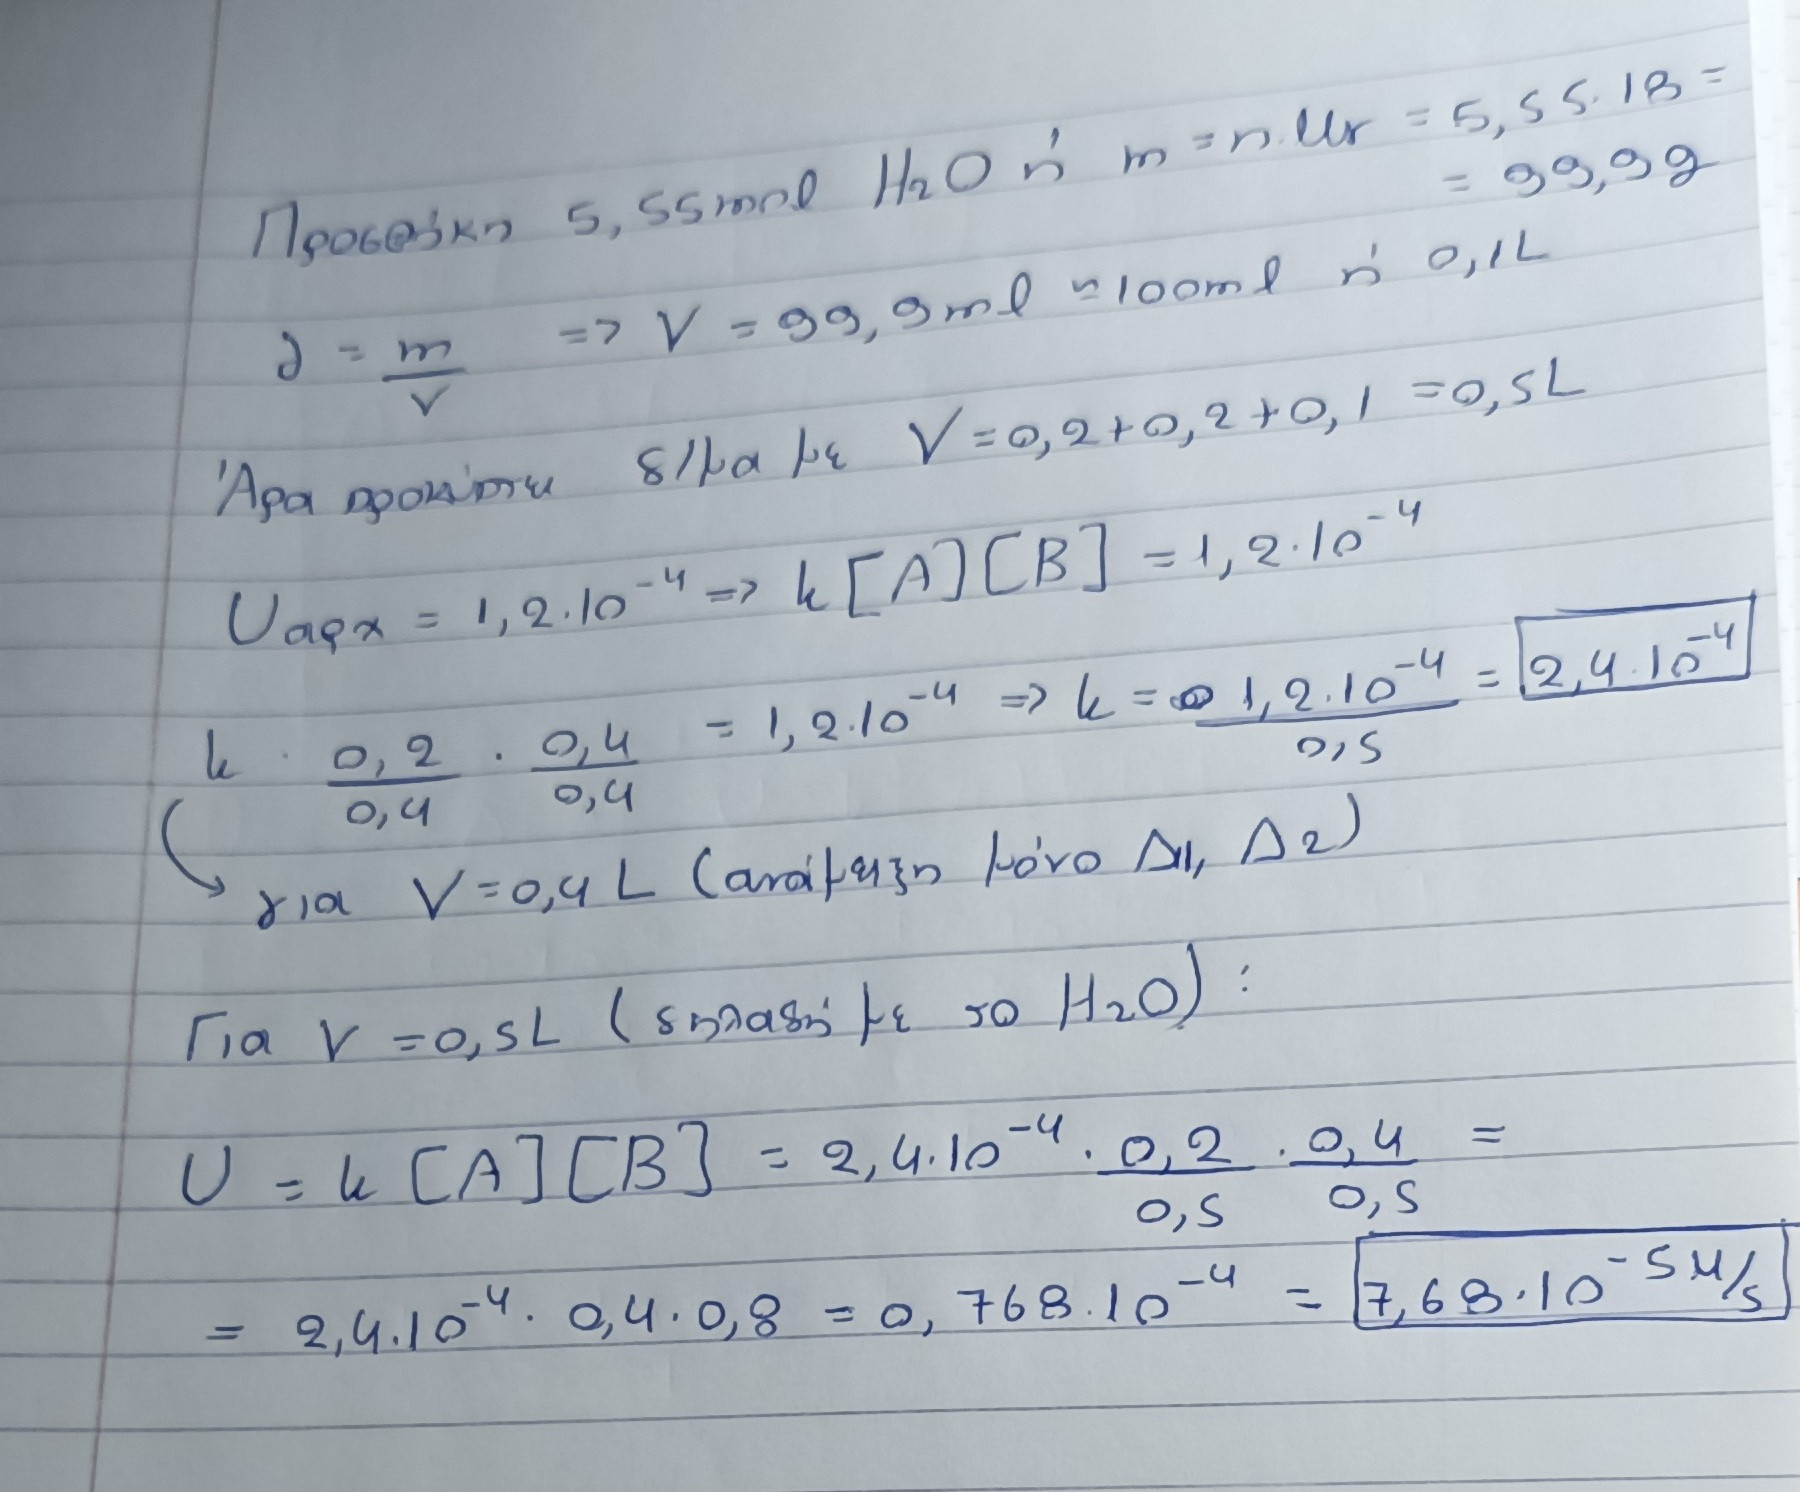 Προσθήκη 5,55mol H₂O ή m = n.Mr = 5,55.18 =
= 99,9g
d = m/V => V = 99,9ml ≈ 100ml ή 0,1L
Άρα προκύπτει δ/μα με V = 0,2+0,2+0,1 = 0,5L
Uαρχ = 1,2.10⁻⁴ => k[A][B] = 1,2.10⁻⁴
k . 0,2/0,4 . 0,4/0,4 = 1,2.10⁻⁴ => k = 1,2.10⁻⁴/0,5 = 2,4.10⁻⁴
για V=0,4 L (ανάμειξη μόνο Δ1, Δ2)
Για V=0,5L (δηλαδή με το H₂O):
U = k [A][B] = 2,4.10⁻⁴ . 0,2/0,5 . 0,4/0,5 =
= 2,4.10⁻⁴ . 0,4.0,8 = 0,768.10⁻⁴ = 7,68.10⁻⁵ M/s